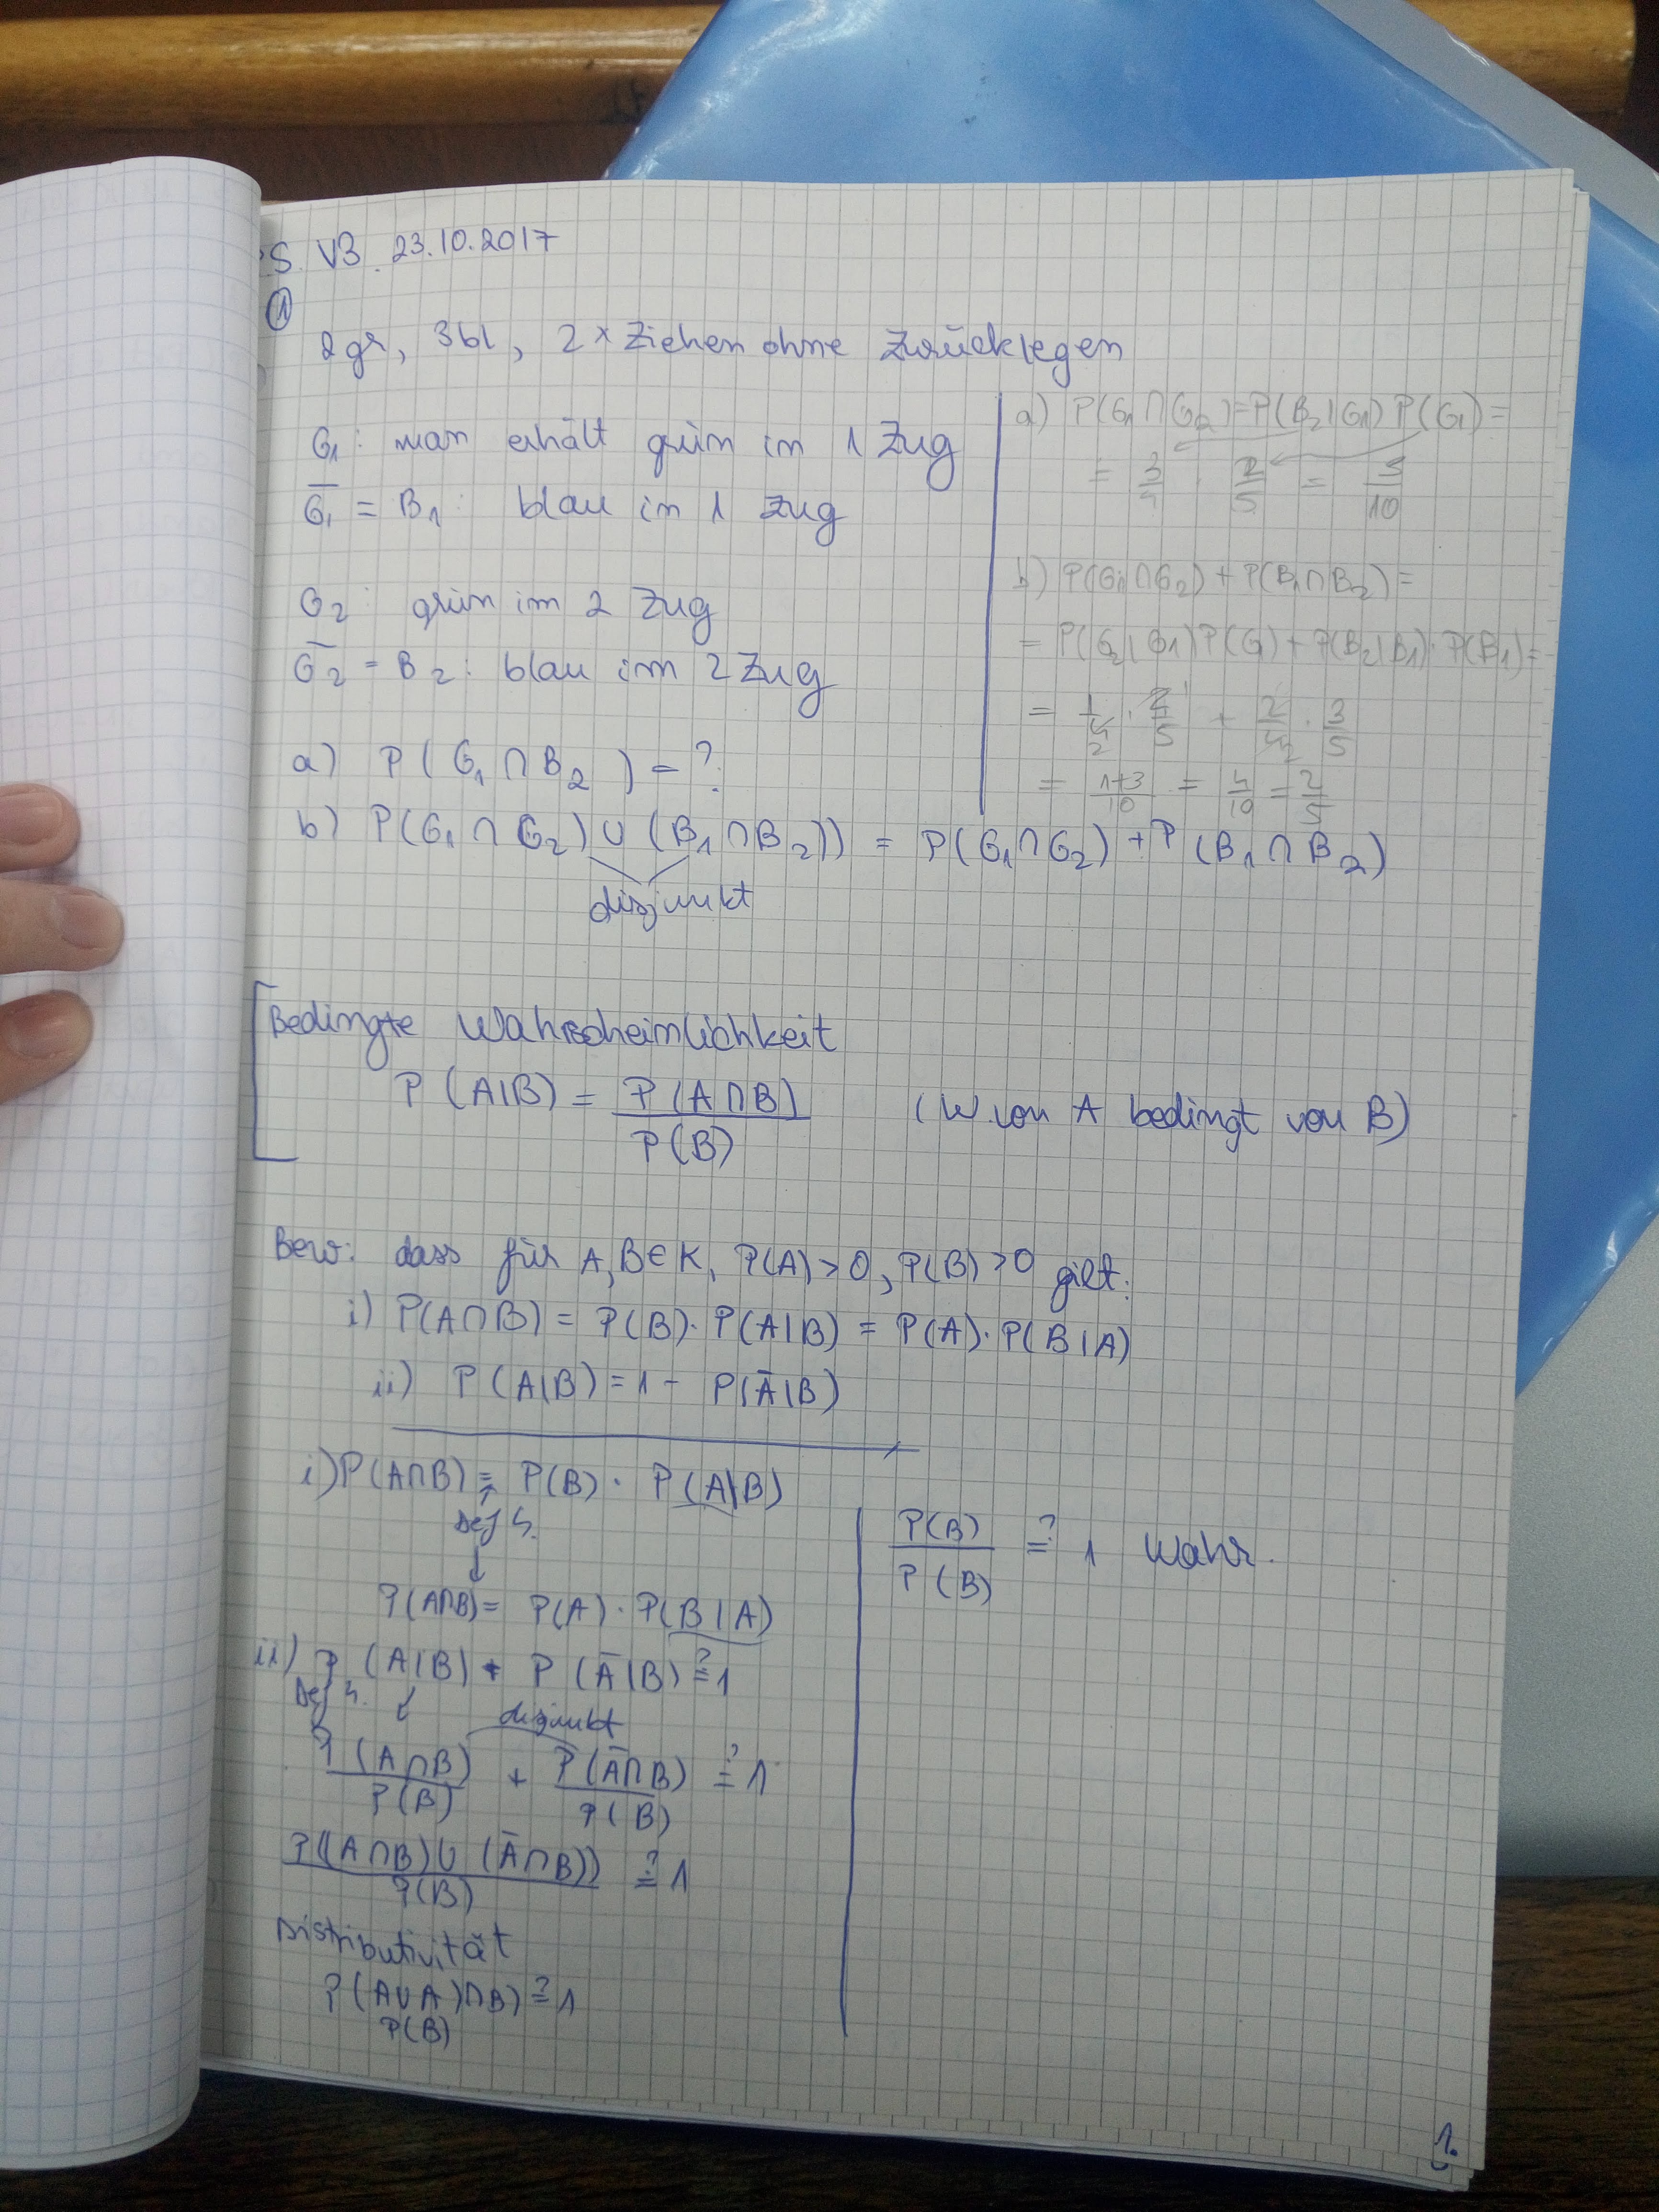 S. V3. 23.10.2017
①
2gr, 3bl, 2 x Ziehen ohne Zurücklegen
G₁: man erhält grün im 1 Zug
G̅₁ = B₁: blau im 1 Zug
G₂: grün im 2 Zug
G̅₂ = B₂: blau im 2 Zug
a) P(G₁ ∩ B₂) = ?
a) P(G₁ ∩ G₂) = P(B₂|G₁) P(G₁) =
= 3/4 · 2/5 = 3/10
b) P(G₁ ∩ G₂) + P(B₁ ∩ B₂) =
= P(G₂|G₁) P(G) + P(B₂|B₁) · P(B₁) =
= 1/4 2 · 2/5 + 2/4 2 · 3/5
= 1+3/10 = 4/10 = 2/5
b) P(G₁ ∩ G₂) ∪ (B₁ ∩ B₂)) = P(G₁ ∩ G₂) + P(B₁ ∩ B₂)
disjunkt
Bedingte Wahrscheinlichkeit
P(A|B) = P(A ∩ B) / P(B) (W. von A bedingt von B)
Bew: dass für A, B ∈ K, P(A) > 0, P(B) > 0 gilt:
i) P(A ∩ B) = P(B) · P(A|B) = P(A) · P(B|A)
ii) P(A|B) = 1 - P(A̅|B)
i) P(A∩B) = P(B) · P(A|B)
Def 4.
↓
P(A∩B) = P(A) · P(B|A)
ii) P(A|B) + P(A̅|B) ≟ 1
Def 4. disjunkt
P(A ∩ B) / P(B) + P(A̅ ∩ B) / P(B) ≟ 1
P((A∩B) ∪ (A̅∩B)) / P(B) ≟ 1
Distributivität
P(A∪A)∩B) ≟ 1
P(B)
P(B) / P(B) ≟ 1 Wahr.
1.